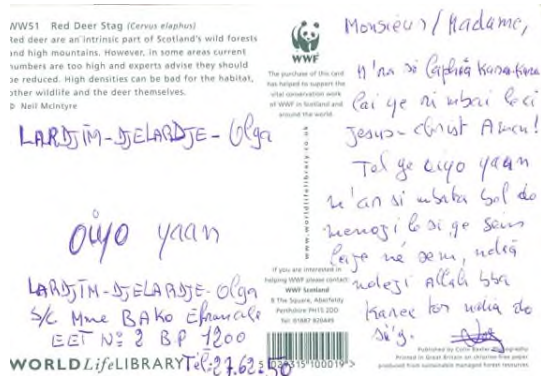 WW51 Red Deer Stag (Cervus elaphus)
Red deer are an intrinsic part of Scotland's wild forests
and high mountains. However, in some areas current
numbers are too high and experts advise they should
be reduced. High densities can be bad for the habitat,
other wildlife and the deer themselves.
© Neil McIntyre
LARDJIM-DJELARDJE-Olga
oiyo yaan
LARDJIM-DJELARDJE-Olga
S/C Mme BAKO
EET Nº 2 BP 1200
Tél: 27.62.50
WORLD LifeLIBRARY
WWF
The purchase of this card
has helped to support the
vital conservation work
of WWF in Scotland and
around the world.
www.worldlifelibrary.co.uk
If you are interested in
helping WWF please contact:
WWF Scotland
8 The Square, Aberfeldy
Perthshire PH15 2DD
Tel: 01887 820449
Monsieur/Madame,
n'na si Kara-Kara
lai ye ni mbai leci
Jesus-christ Amen!
Tel ge oiyo yaan
n'an si mbata bol do
lesi ge sem
ne sem, ndia
ndezi Allah bba
Karee tor ndia do
si'g.
Published by Colin Baxter Photography
Printed in Great Britain on chlorine-free paper
produced from sustainable managed forest resources.